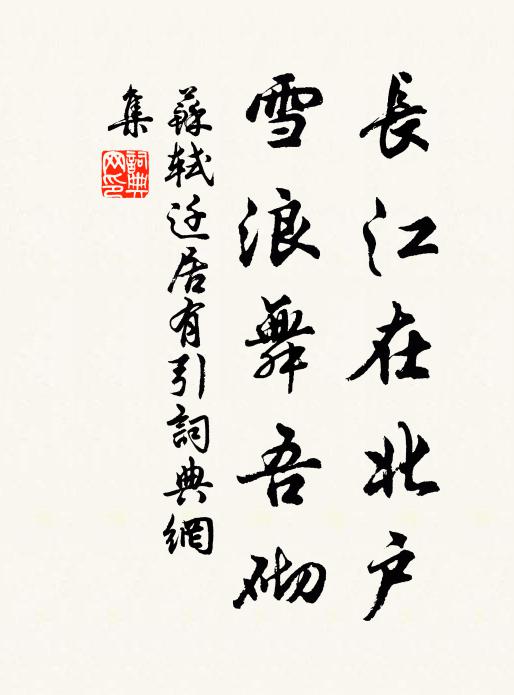 長江在北户
雪浪舞吾砌
蘇軾迁居有引詞典網
集
詞典
网印